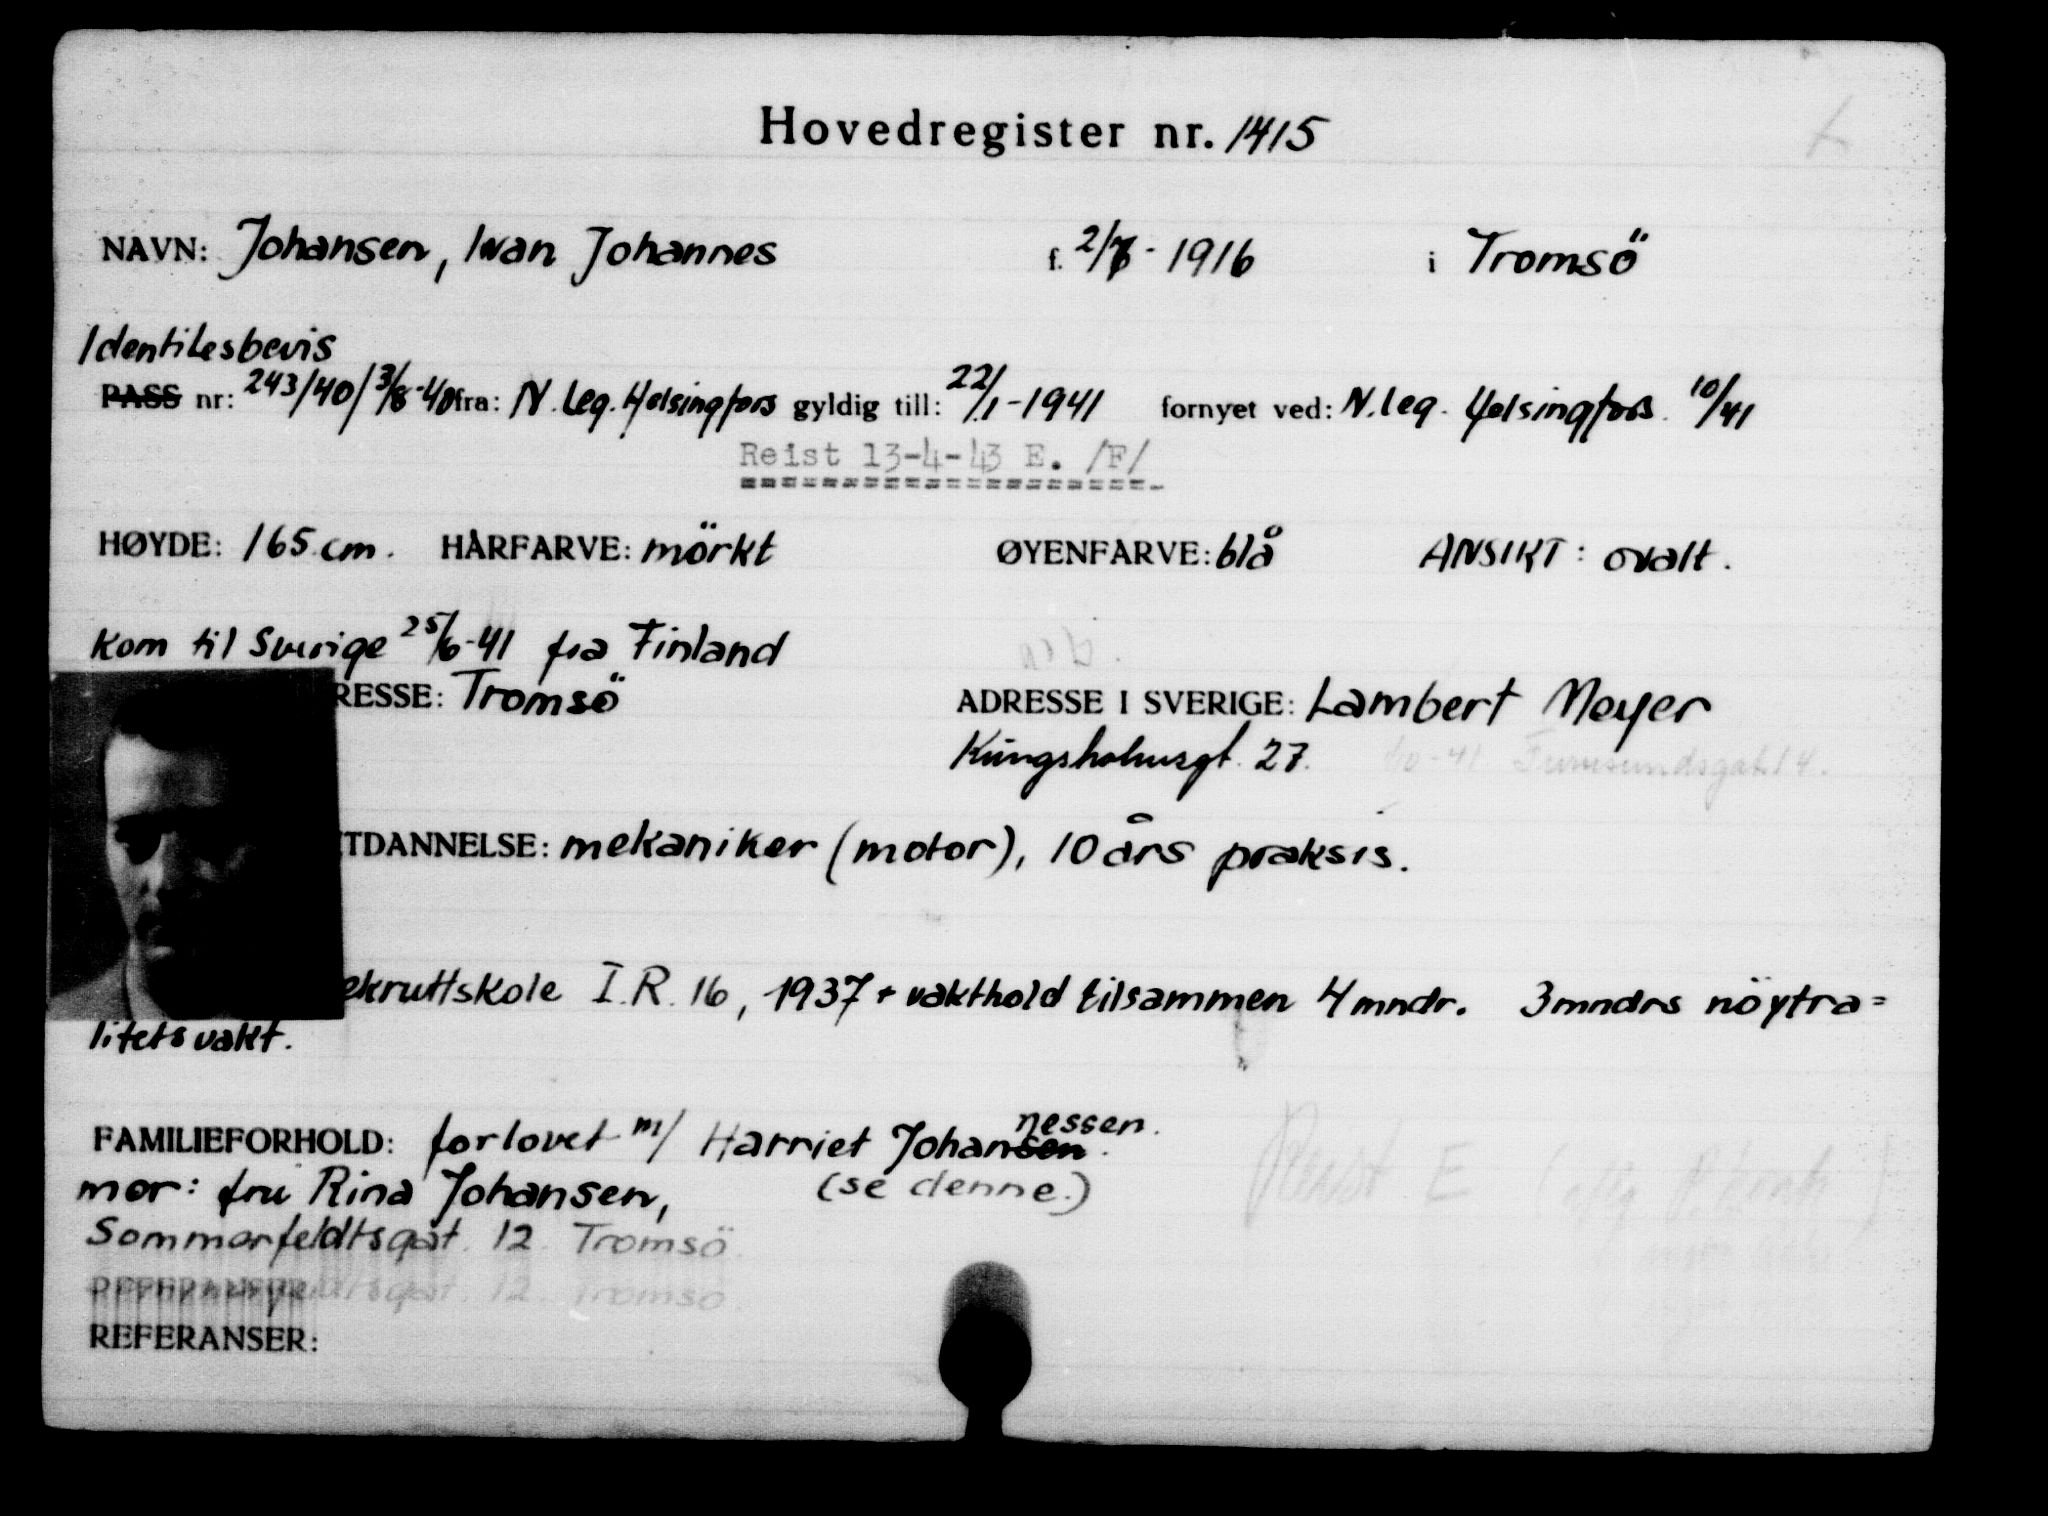 Hovedregister nr. 1415
NAVN: Johansen, Ivan Johannes f. 2/8 - 1916 i Tromsö
Identitesbevis
PASS nr: 243/40/3/8-40 fra: N. Leg. Helsingfors gyldig till: 22/1 - 1941 fornyet ved: N. leg. Helsingfors. 10/41
Reist 13-4-43 E. /F/
HØYDE: 165 cm. HÅRFARVE: mörkt ØYENFARVE: blå ANSIKT: ovalt.
Kom til Sverige 25/6-41 fra Finland
RESSE: Tromsö ADRESSE I SVERIGE: Lambert Meyer
Kungsholmsgt. 27.
TDANNELSE: mekaniker (motor), 10 års praksis.
ekruttskole I.R. 16, 1937 + vakthold tilsammen 4 mndr. 3 mndrs nöytra=
litetsvakt.
nessen.
FAMILIEFORHOLD: forlovet m/ Harriet Johansen.
mor: fru Rina Johansen, (se denne.)
Sommerfeldtsgat. 12. Tromsö
REFERANSER: